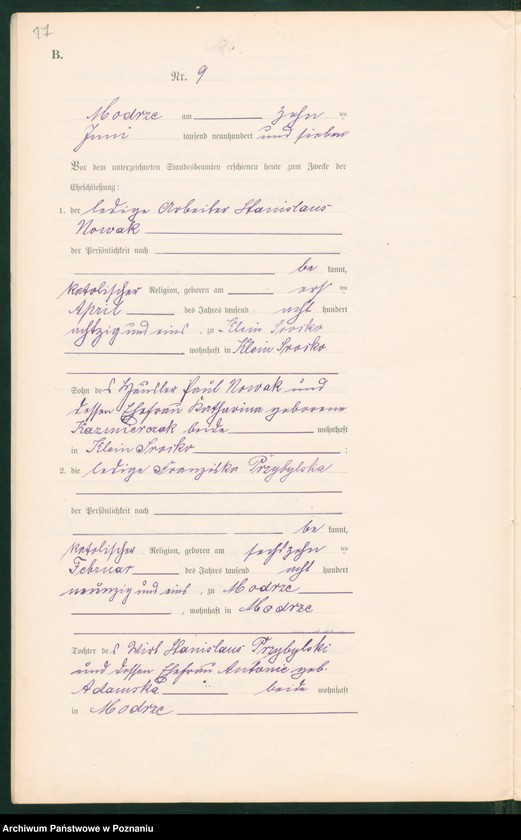 17
B.
Nr. 9
Modrze am zehn ten
Juni tausend neunhundert und sieben
Vor dem unterzeichneten Standesbeamten erschienen heute zum Zwecke der
Eheschließung:
1. der ledige Arbeiter Stanislaus
Nowak
der Persönlichkeit nach
be kannt,
katolischer Religion, geboren am ers ten
April des Jahres tausend acht hundert
achtzig und eins, zu Klein Srocko
, wohnhaft in Klein Srocko
Sohn des Häusler Paul Nowak und
dessen Ehefrau Katharina geborene
Kazmierczak beide wohnhaft
in Klein Srocko ;
2. die ledige Franziska Przybylska
der Persönlichkeit nach
be kannt,
katolischer Religion, geboren am sechszehn ten
Februar des Jahres tausend acht hundert
neunzig und eins, zu Modrze
, wohnhaft in Modrze
Tochter des Wirt Stanislaus Przybylski
und dessen Ehefrau Antonie geb.
Adamska beide wohnhaft
in Modrze
Archiwum Państwowe w Poznaniu